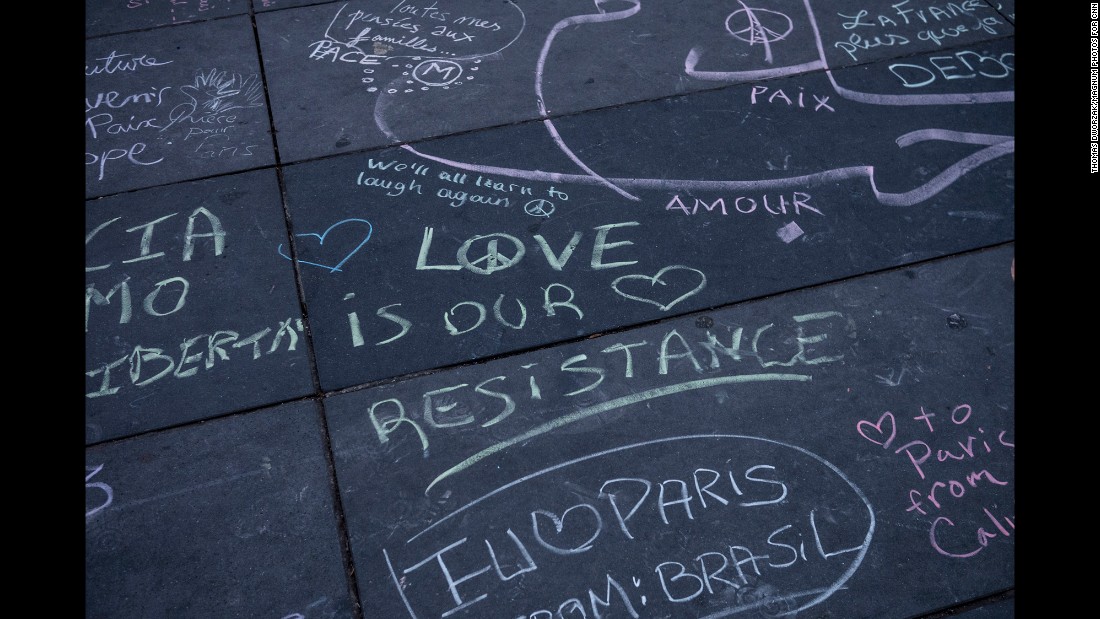 Toutes mes
pensées aux
familles...
PACE
M
LA FRANCE
plus que j
DEBO
PAIX
uture
venir
Paix
ope
Prière
pour
Paris
We'll all learn to
laugh again
AMOUR
CIA
MO
IBERTA'
LOVE
is OUR
RESISTANCE
to
Paris
from
Cali
I PARIS
FROM: BRASIL
THOMAS DWORZAK/MAGNUM PHOTOS FOR CNN